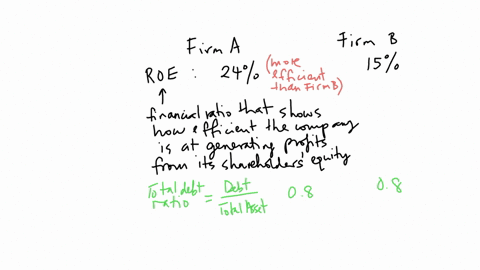 Firm A Firm B
ROE : 24% (more efficient than Firm B) 15%
financial ratio that shows
how efficient the company
is at generating profits
from its shareholders' equity
Total debt ratio = Debt / Total Asset 0.8 0.8